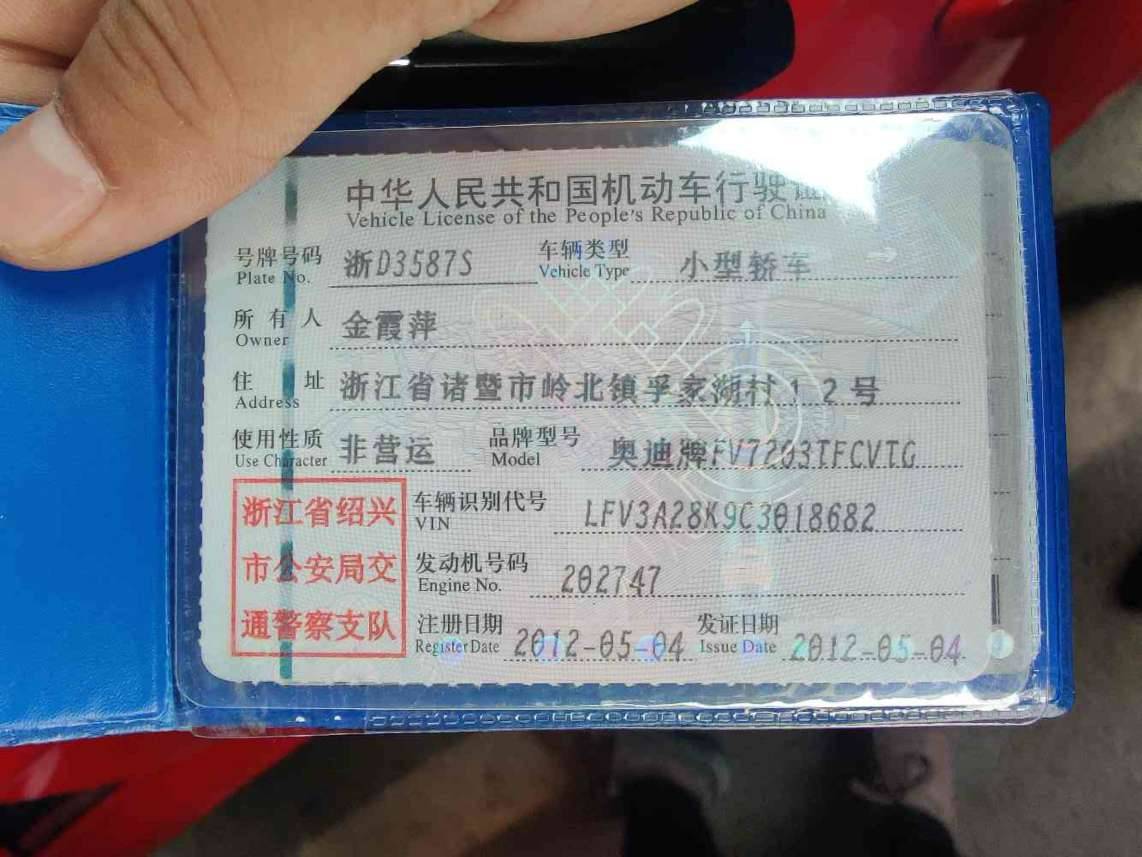 中华人民共和国机动车行驶证
Vehicle License of the People's Republic of China
号牌号码 浙D3587S 车辆类型 小型轿车
Plate No. Vehicle Type
所有人 金霞萍
Owner
住址 浙江省诸暨市岭北镇孚家湖村12号
Address
使用性质 非营运 品牌型号 奥迪牌FV7203TFCVTG
Use Character Model
浙江省绍兴
市公安局交
通警察支队
车辆识别代号 LFV3A28K9C3018682
VIN
发动机号码 202747
Engine No.
注册日期 2012-05-04 发证日期 2012-05-04
Register Date Issue Date